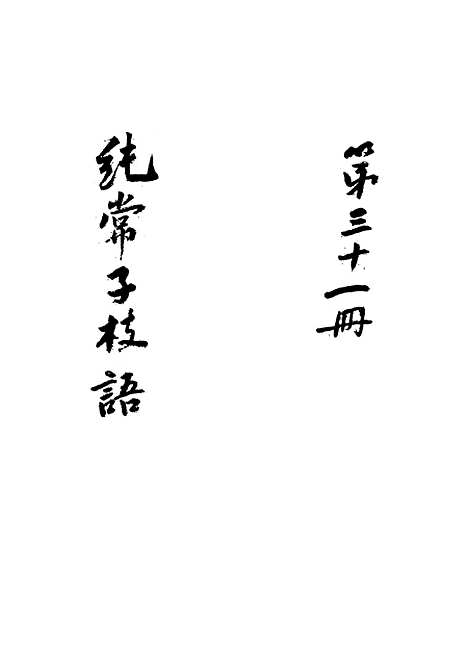 第三十一冊
純常子枝語